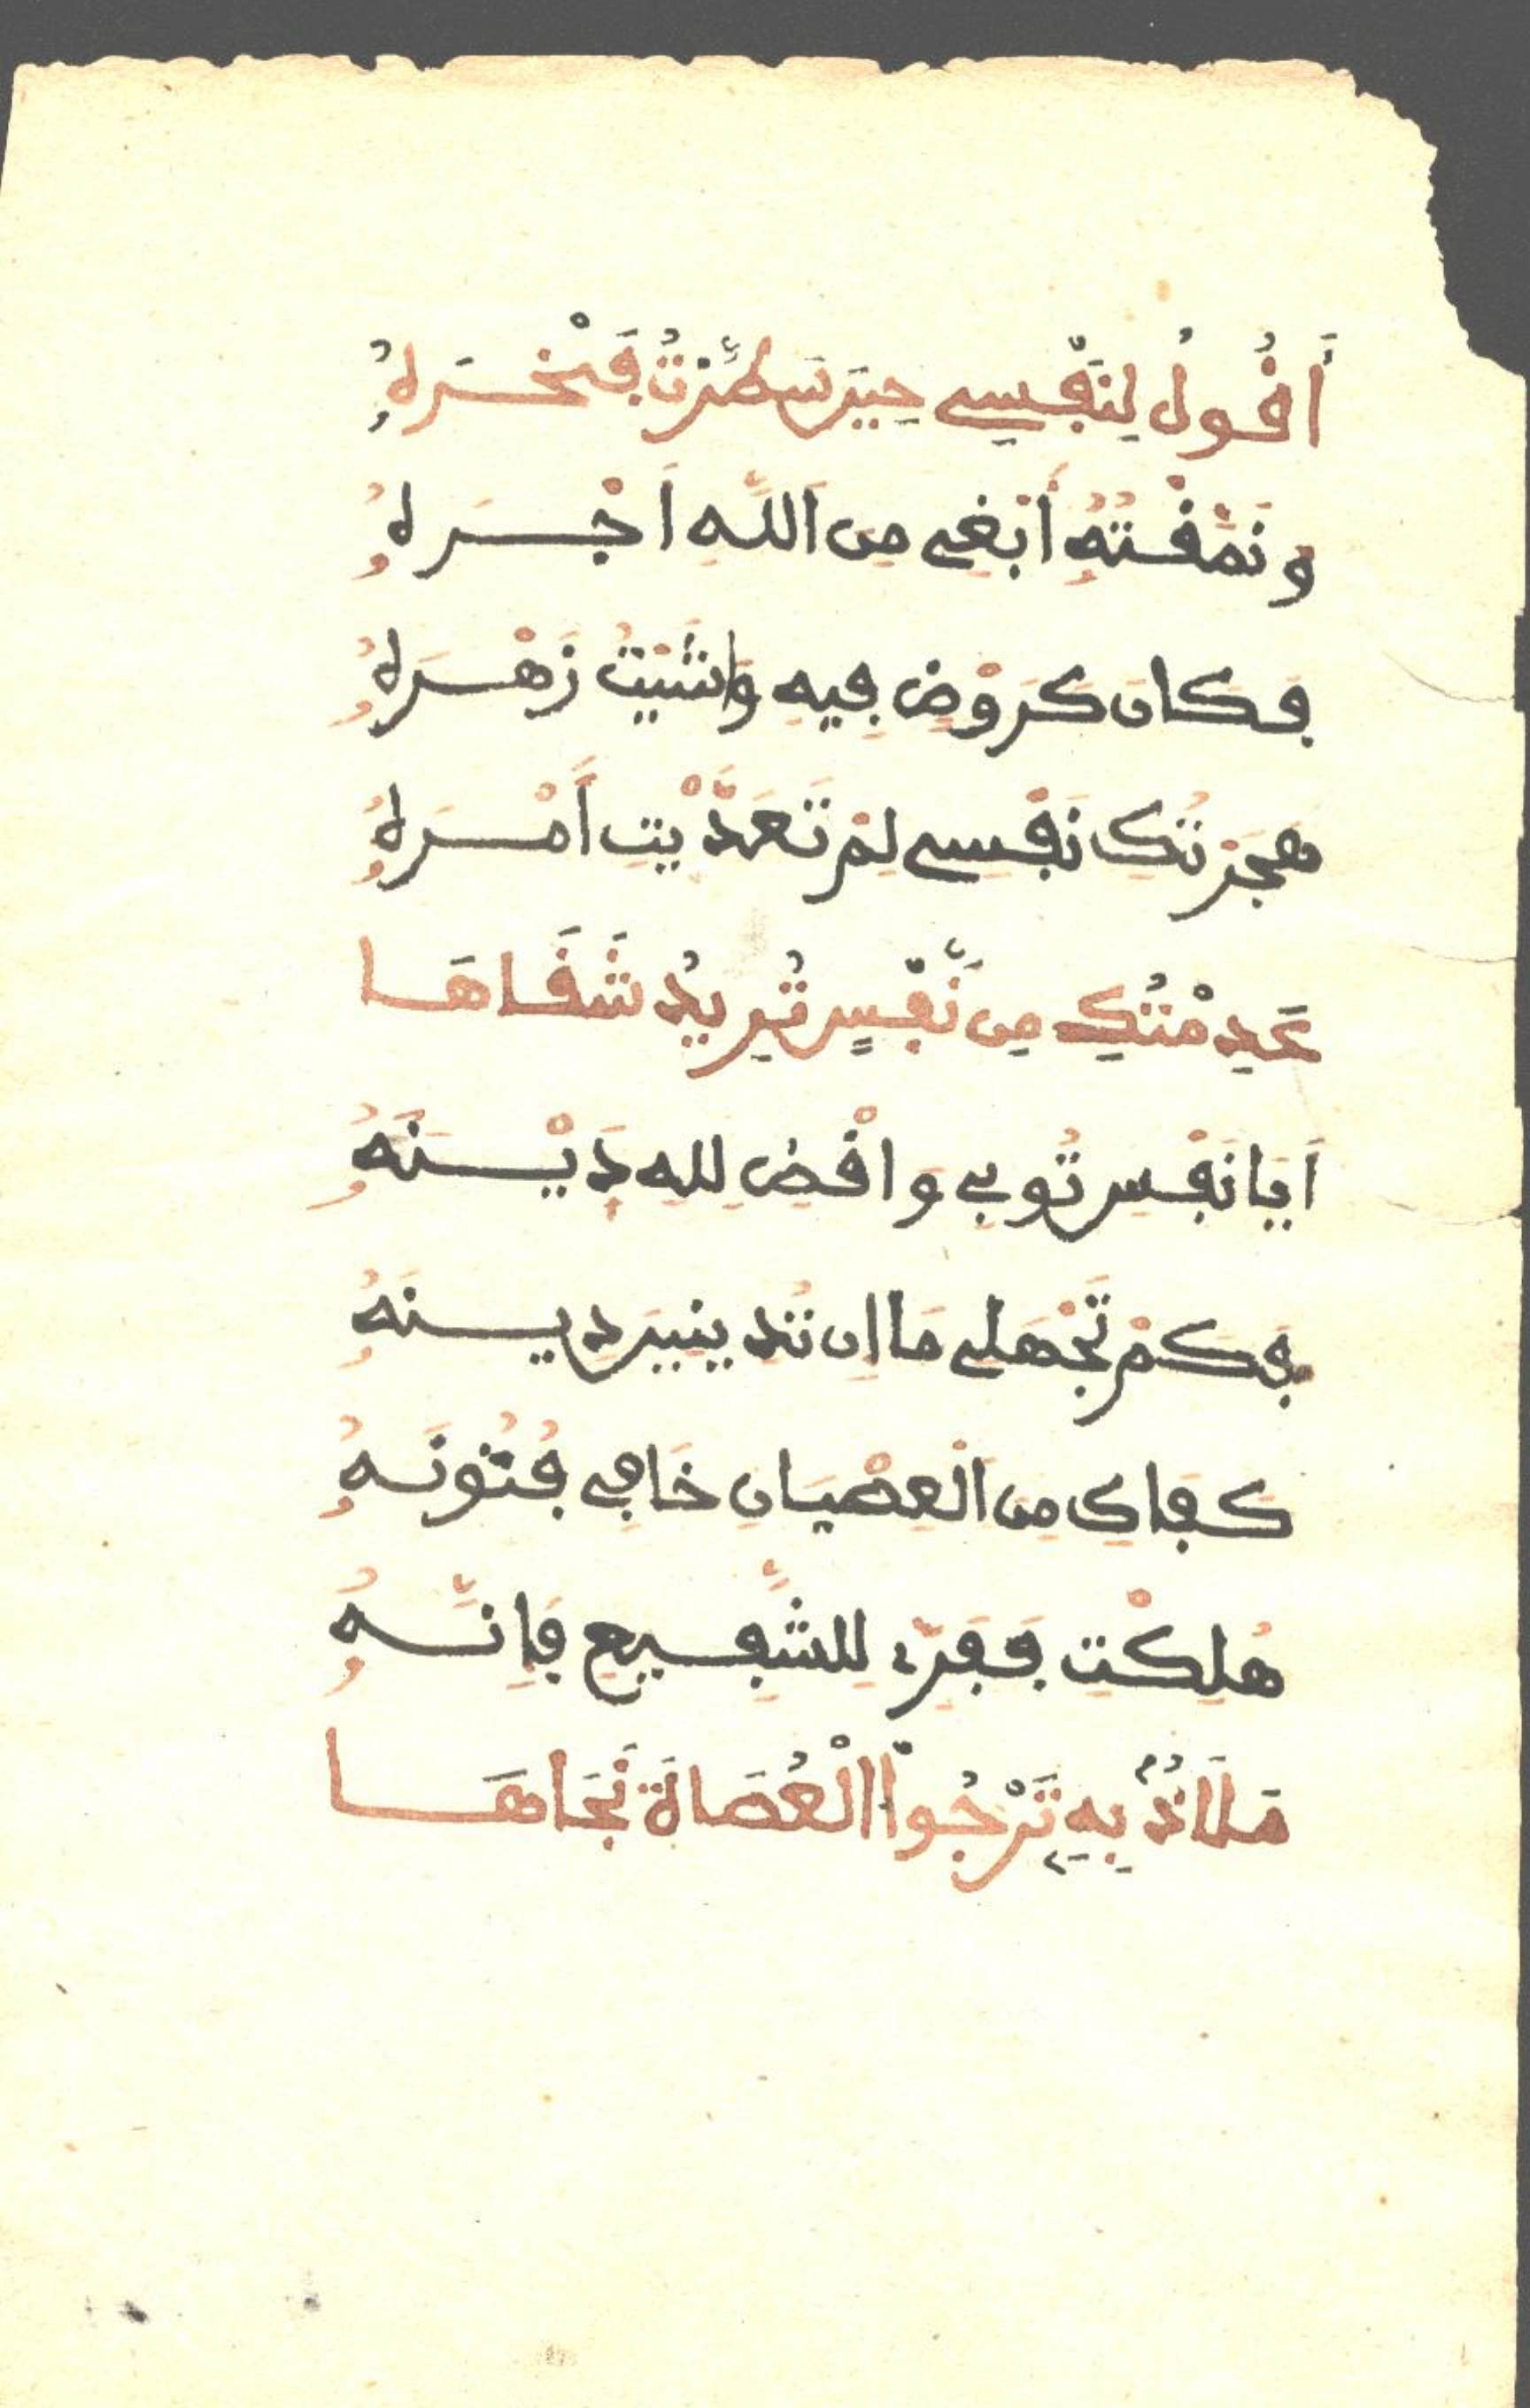 أَقُولُ لِنَفْسِي حِينَ سَطَّرْتُ فَخْرَهُ
وَنَمَّقْتُهُ أَبْغِي مِنَ اللَّهِ أَجْرَهُ
فَكَانَ كَرَوْضٍ فِيهِ وَاشَيْتُ زَهْرَهُ
هَجَرْتُكِ نَفْسِي لِمْ تَعَدَّيْتِ أَمْرَهُ
عَدِمْتُكِ مِن نَّفْسٍ تُرِيدُ شَقَاهَا
أَيَا نَفْسِ تُوبِي وَاقْضِ لِلهِ دَيْنَهُ
فَكَمْ تَجْهَلِي مَا إِن تَدِينِينَ دِينَهُ
كَفَاكِ مِنَ الْعِصْيَانِ خَافِي فُتُونَهُ
هَلَكْتِ فَفِرِّي لِلشَّفِيعِ فَإِنَّهُ
مَلَاذٌ بِهِ تَرْجُوا الْعُصَاةُ نَجَاهَا